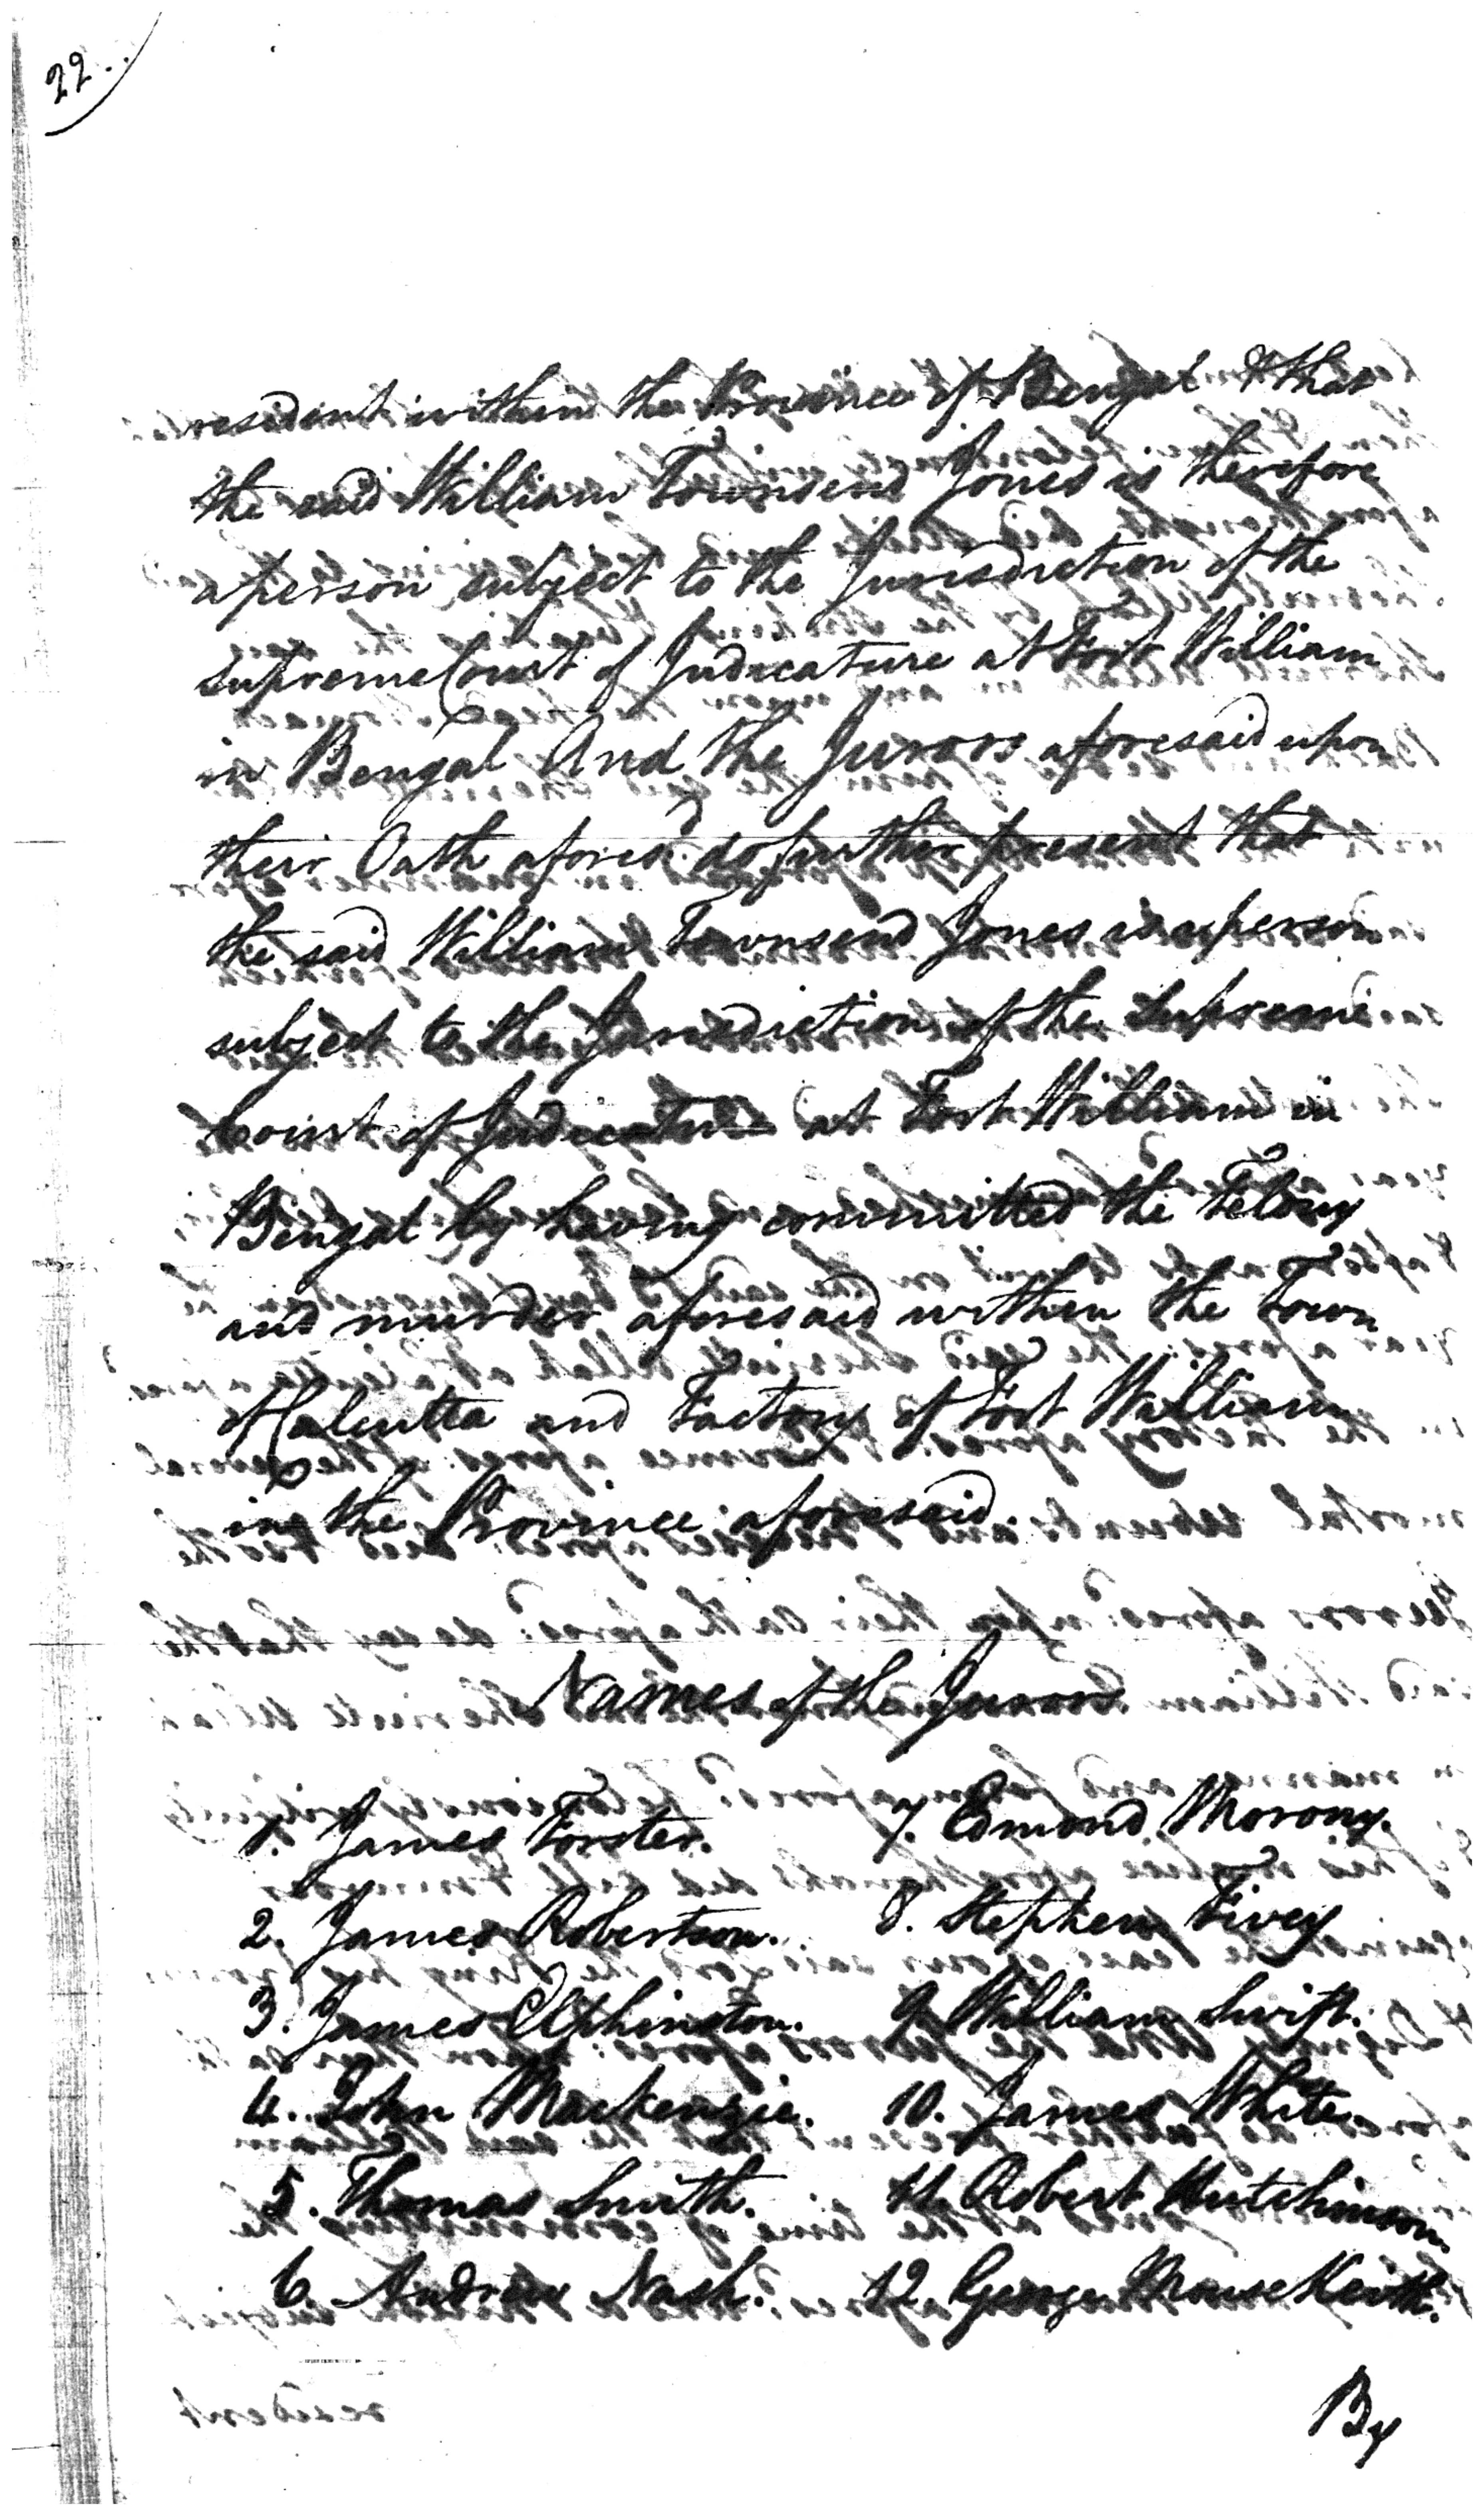 22..
resident within the Province of Bengal & that
the said William Townsend Jones is therefore
a person subject to the Jurisdiction of the
Supreme Court of Judicature at Fort William
in Bengal And the Jurors aforesaid upon
their Oath afores.d do further present that
the said William Townsend Jones is a person
subject to the Jurisdiction of the Supreme
Court of Judicature at Fort William in
Bengal by having committed the Felony
and murder aforesaid within the Town
of Calcutta and Factory of Fort William
in the Province aforesaid.
Names of the Jurors
1. James Forster. 7. Edmond Morony.
2. James Robertson. 8. Stephen Fivey
3. James Elphinston. 9. William Swift.
4. John Mackenzie. 10. James White.
5. Thomas Smith. 11. Robert Hutchinson.
6. Andrew Nash. 12. George Keith.
By